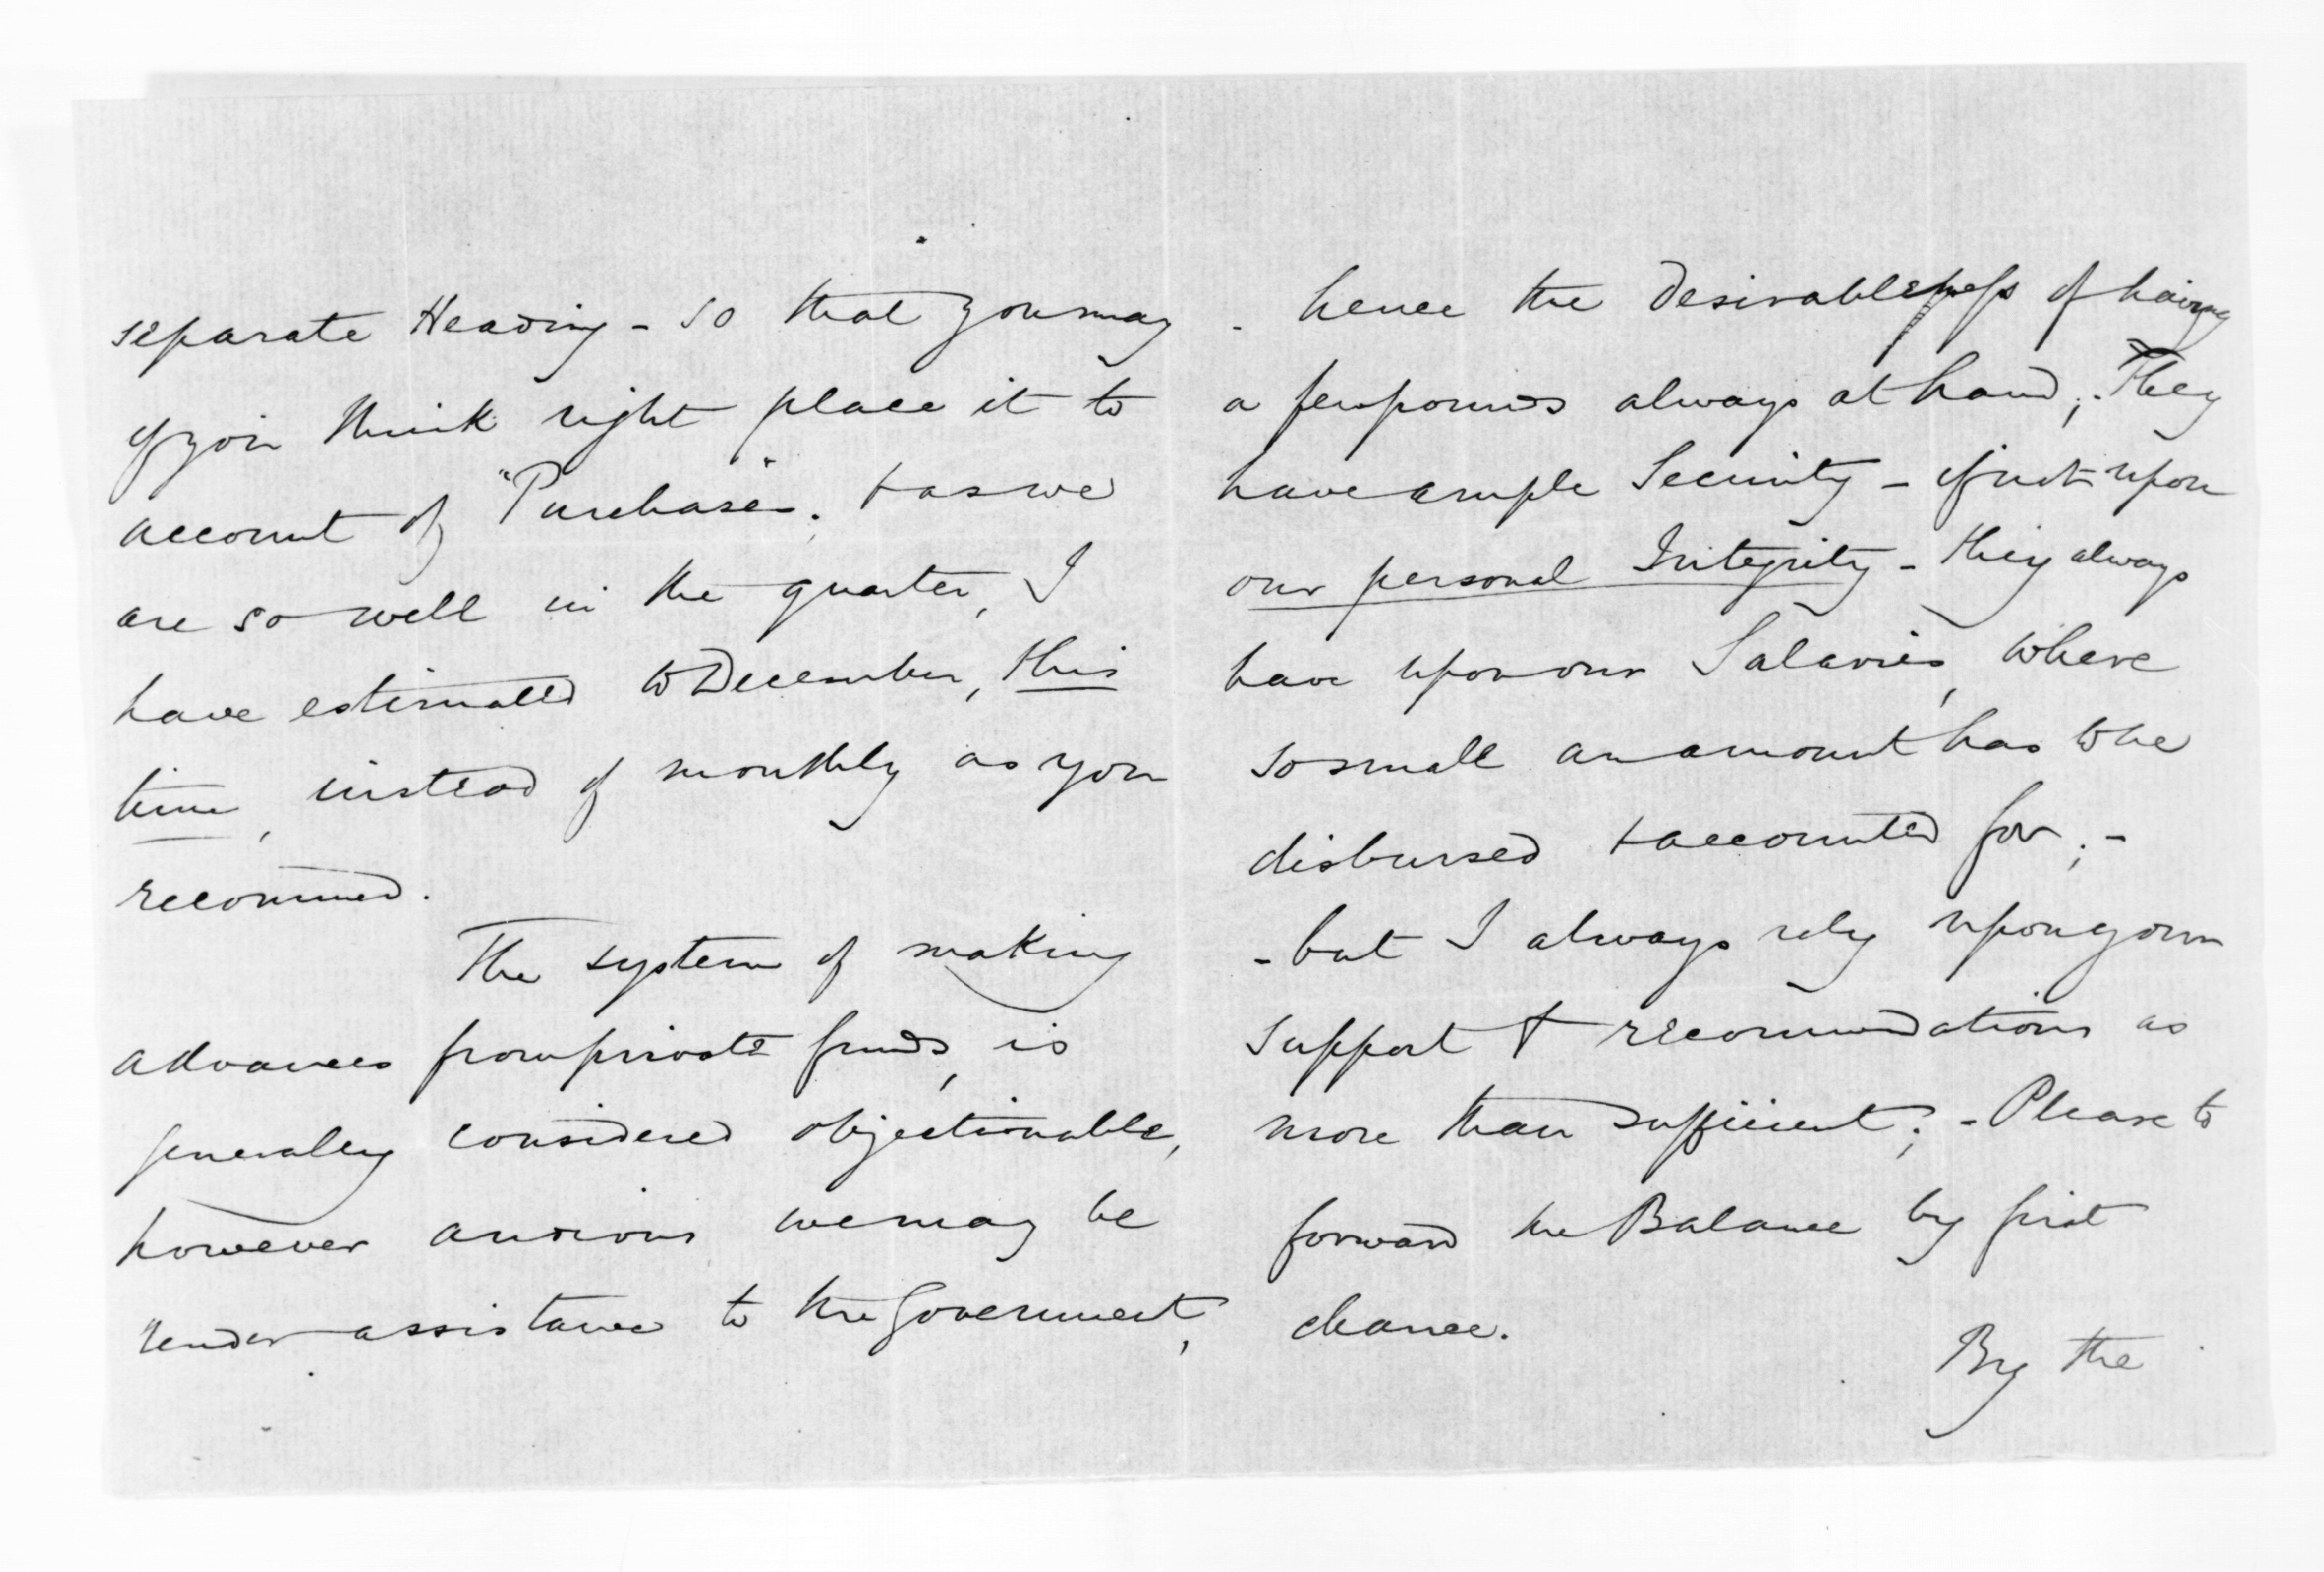 separate Heading - so that you may
if you think right place it to
account of "Purchases". & as we
are so well in the quarter, I
have estimated to December, this
time, instead of monthly as you
recommend.
The system of making
advances from private funds, is
generally considered objectionable,
however anxious we may be
render assistance to the Government,
- hence the desirableness of having
a few pounds always at hand; They
have ample Security - if not upon
our personal Integrity - they always
have upon our Salaries, where
so small an amount has to be
disbursed & accounted for; -
- but I always rely upon your
support & recommendations as
more than sufficient; - Please to
forward the Balance by first
chance.
By the